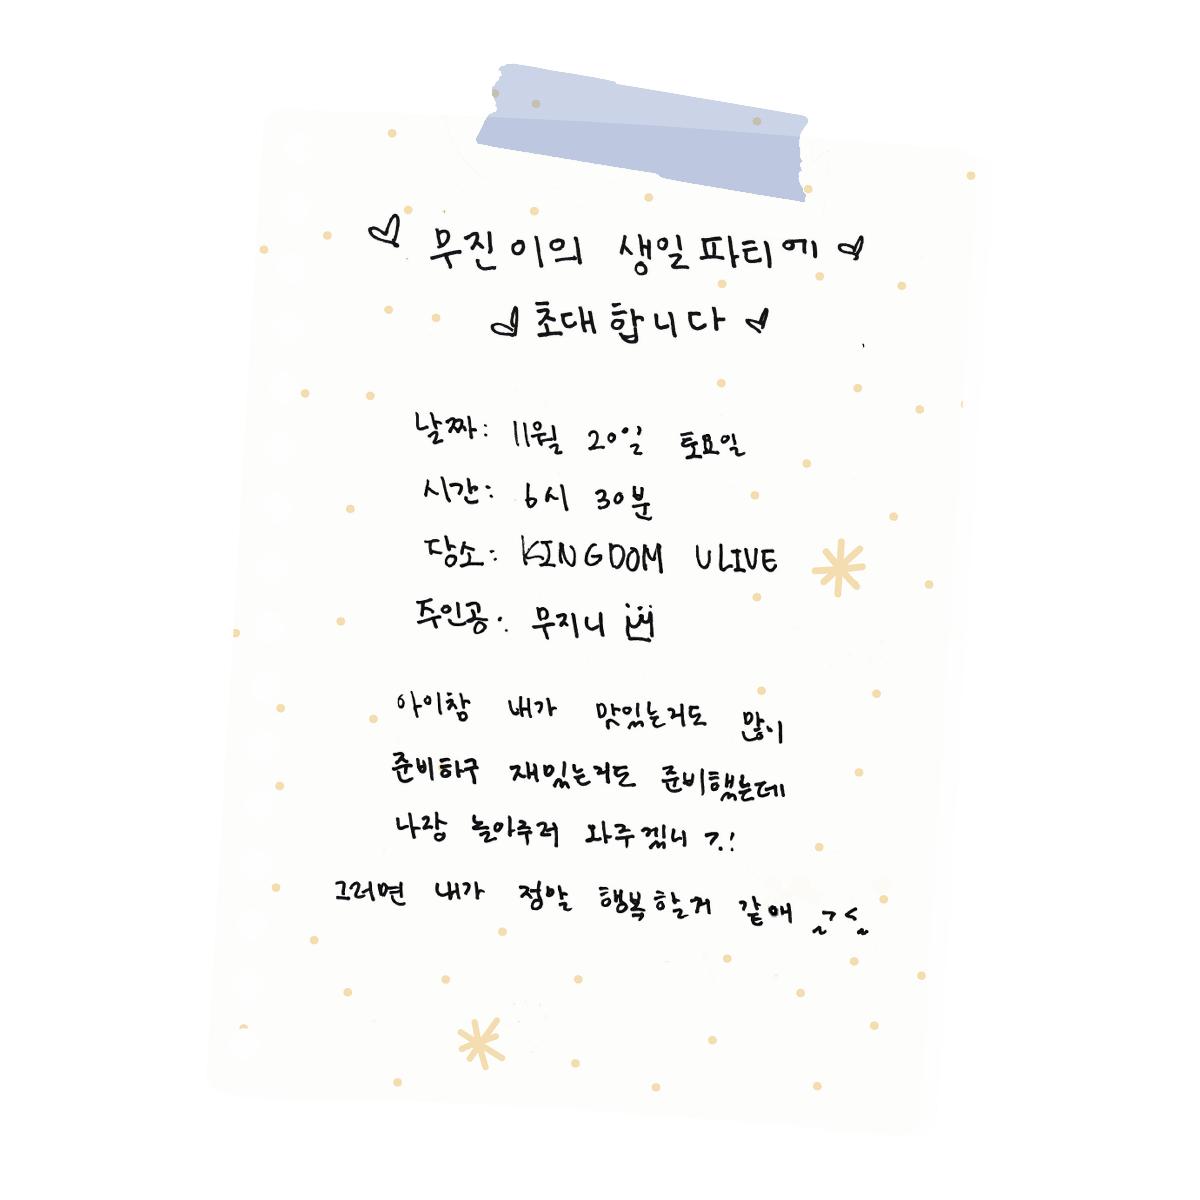 ♡ 무진이의 생일파티에 ♡
♡ 초대합니다 ♡
날짜: 11월 20일 토요일
시간: 6시 30분
당소: KINGDOM ULIVE
주인공: 무지니
아이참 내가 맛있는거도 많이
준비하구 재밌는거도 준비했는데
나랑 놀아주러 와주겠니?!
그러면 내가 정말 행복할거 같애 >~<